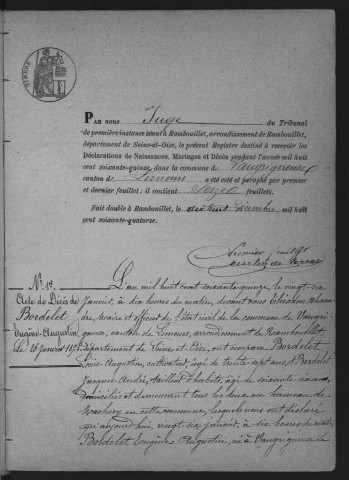 TIMBRE
PAR nous Juge du Tribunal
de première instance séant à Rambouillet, arrondissement de Rambouillet,
département de Seine-et-Oise, le présent Registre destiné à recevoir les
Déclarations de Naissances, Mariages et Décès pendant l'année mil huit
cent soixante-quinze, dans la commune de Vaugrigneuse
canton de Limours a été coté et paraphé par premier
et dernier feuillet; il contient Seize feuillets.
Fait double à Rambouillet, le dix huit décembre mil huit
cent soixante-quatorze.
Premier feuillet
N° 1er
Acte de Décès de
Bordelet
Eugène-Augustin
Le 26 janvier 1875
L'an mil huit cent soixante quinze, le vingt-six
Janvier, à dix heures du matin, devant nous
maire et officier de l'état civil de la commune de Vaugri
gneuse, canton de Limours, arrondissement de Rambouillet
Département de Seine et Oise, ont comparu Bordelet
Louis-Augustin, cultivateur, âgé de trente sept ans, et Bordelet
Jacques André, tailleur d'habits, âgé de soixante
domiciliés et demeurant tous les deux au hameau de
Machery en cette commune, lesquels nous ont déclaré
qu'aujourd'hui, vingt-six janvier, à six heures du mat
Bordelet Eugène Augustin, né à Vaugrigneuse le